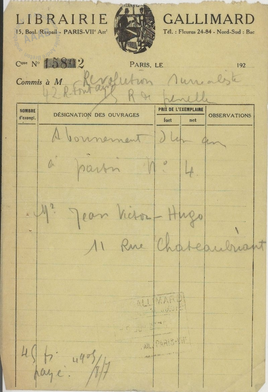 LIBRAIRIE GALLIMARD
15, Boul. Raspail - PARIS-VIIe Arrt
Tél. : Fleurus 24-84 - Nord-Sud : Bac
Cde N° 15802
PARIS, LE 192
Commis à M Révolution surréaliste
42 R
R de Grenelle
NOMBRE d'exempl.
DÉSIGNATION DES OUVRAGES
PRIX DE L'EXEMPLAIRE
fort
net
OBSERVATIONS
Abonnement d'un an
à partir N° 4
Mr Jean Victor-Hugo
11 Rue Chateaubriant
GALLIMARD
45 fr
payé 7/7